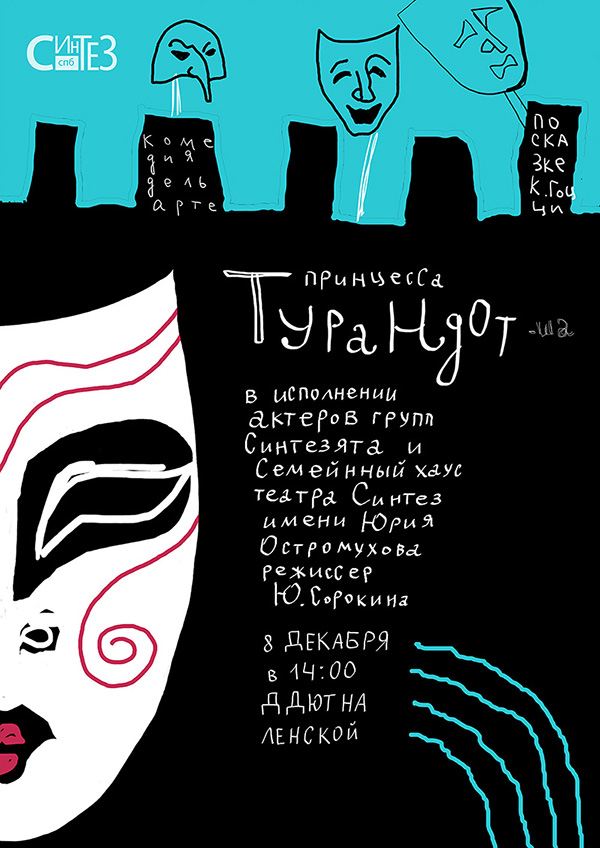 СИНТЕЗ
спб
коме
дия
дель
арте
по
ска
зке
К.Гоц
ци
принцесса
Турандот -ша
в исполнении
актеров групп
Синтезята и
Семейнный хаус
театра Синтез
имени Юрия
Остромухова
режиссер
Ю.Сорокина
8 ДЕКАБРЯ
в 14:00
ДДЮТ НА
ЛЕНСКОЙ